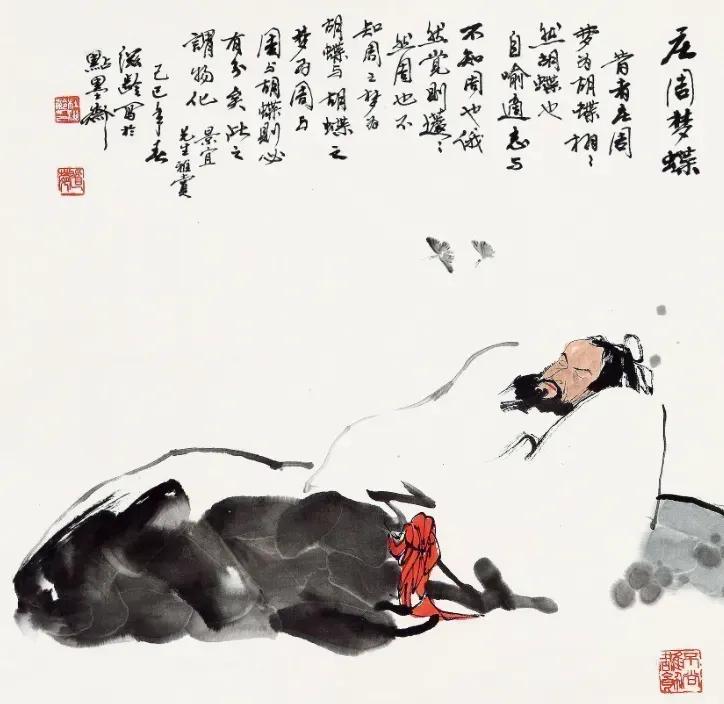 庄周梦蝶
昔者庄周
梦为胡蝶栩〻
然胡蝶也
自喻適志与
不知周也俄
然覚则蘧〻
然周也不
知周之梦为
胡蝶与胡蝶之
梦为周与
周与胡蝶则必
有分矣此之
謂物化 景宜
先生雅賞
己巳年春
滋龄写於
點墨斋